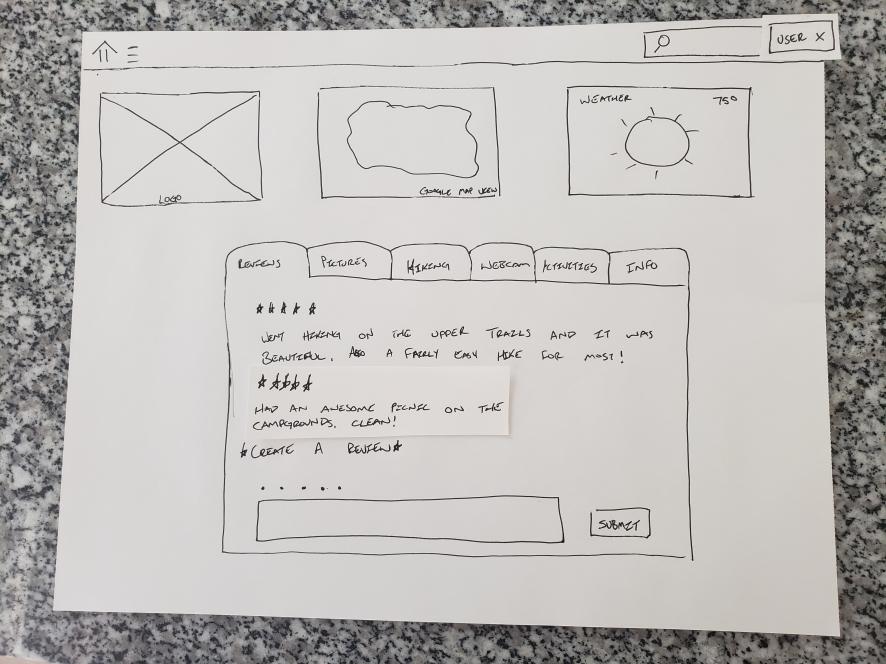 USER X
LOGO
GOOGLE MAP VIEW
WEATHER 75°
REVIEWS PICTURES HIKING WEBCAM ACTIVITIES INFO
WENT HIKING ON THE UPPER TRAILS AND IT WAS
BEAUTIFUL. ALSO A FAIRLY EASY HIKE FOR MOST!
HAD AN AWESOME PICNIC ON THE
CAMPGROUNDS. CLEAN!
*CREATE A REVIEW*
SUBMIT